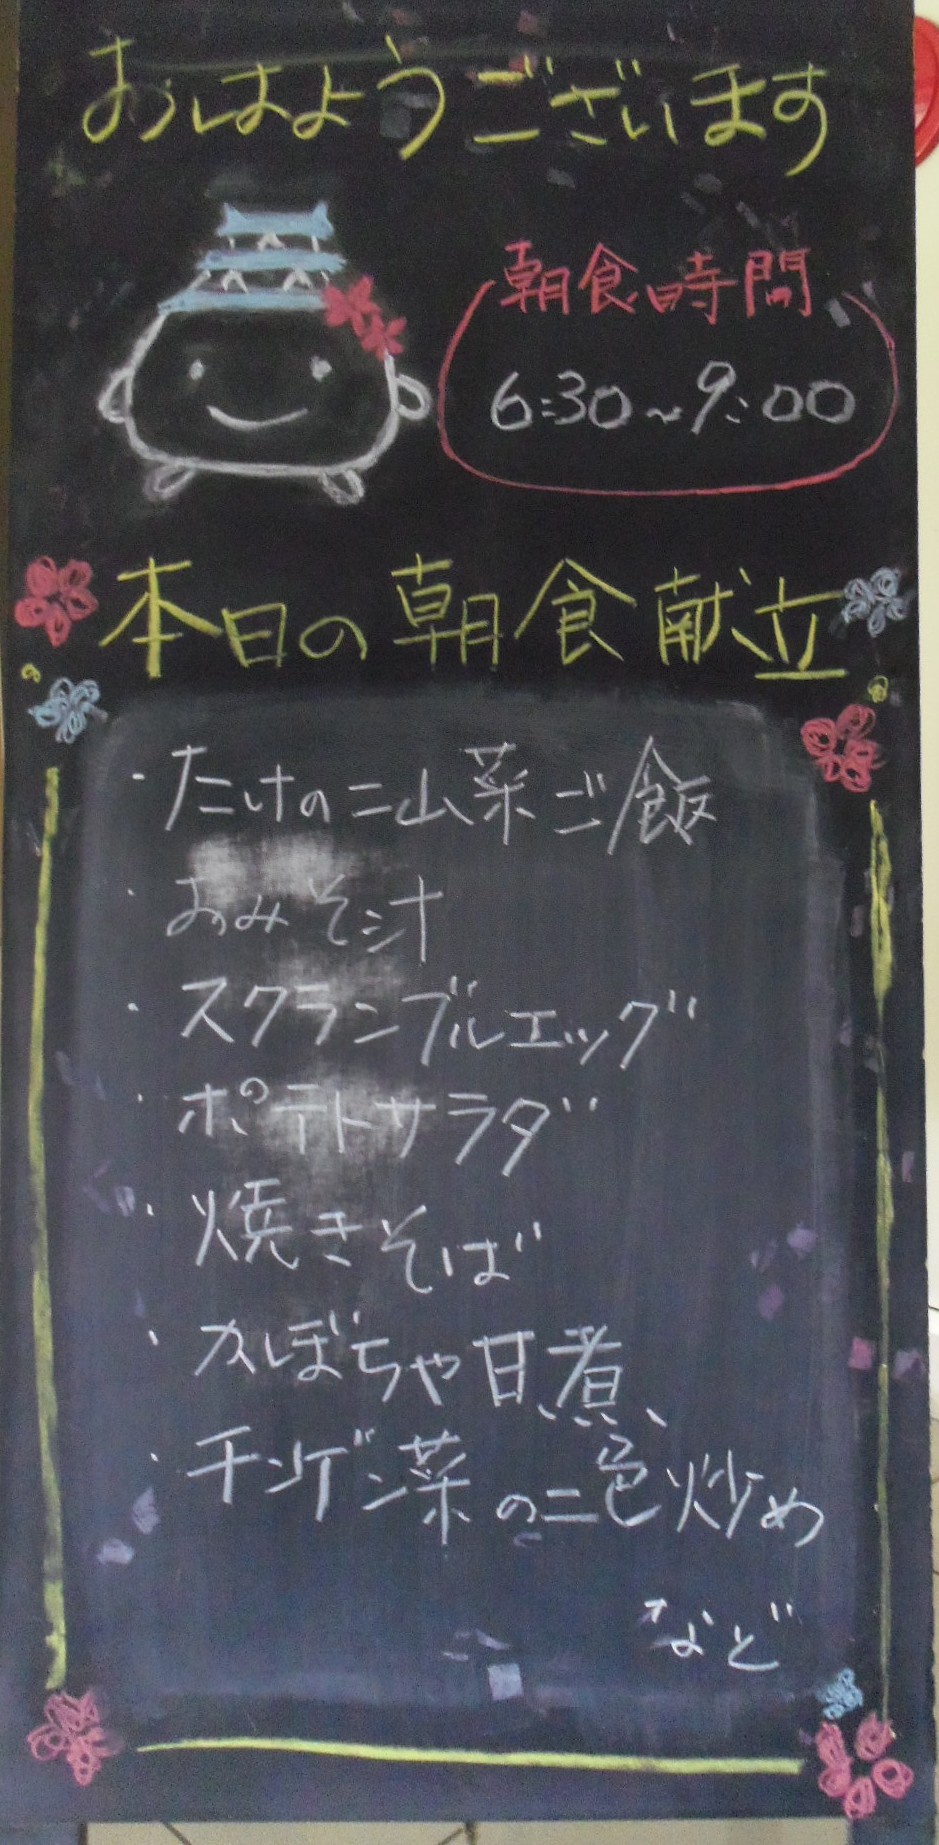 おはようございます
朝食時間
6:30～9:00
本日の朝食献立
・たけのこ山菜ご飯
・おみそ汁
・スクランブルエッグ
・ポテトサラダ
・焼きそば
・かぼちゃ甘煮
・チンゲン菜の二色炒め
など